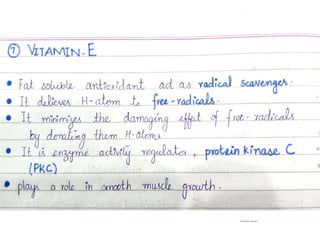 ⑦ VITAMIN-E
• Fat soluble antioxidant act as radical scavenger.
• It delieves H-atom to free-radicals.
• It minimizes the damaging effect of free-radicals
by donating them H-atoms
• It is enzyme activity regulator, protein kinase C
(PKC)
• plays a role in smooth muscle growth.